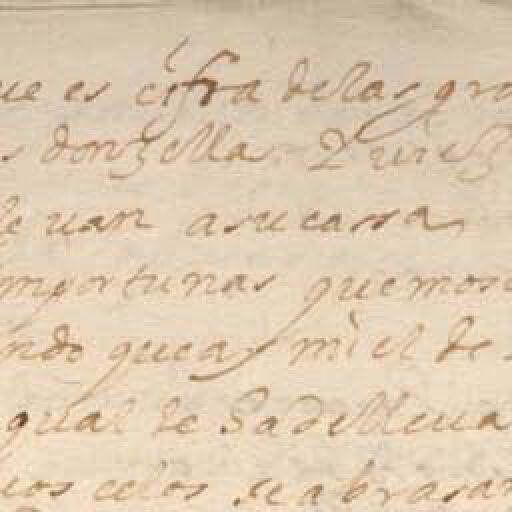 ue es cifra delas gra
s donzella. Quies
le uan asu cassa
mportunas que mosc
ndo queay miel de
qual le Sadelleua
uos celos se abrasan